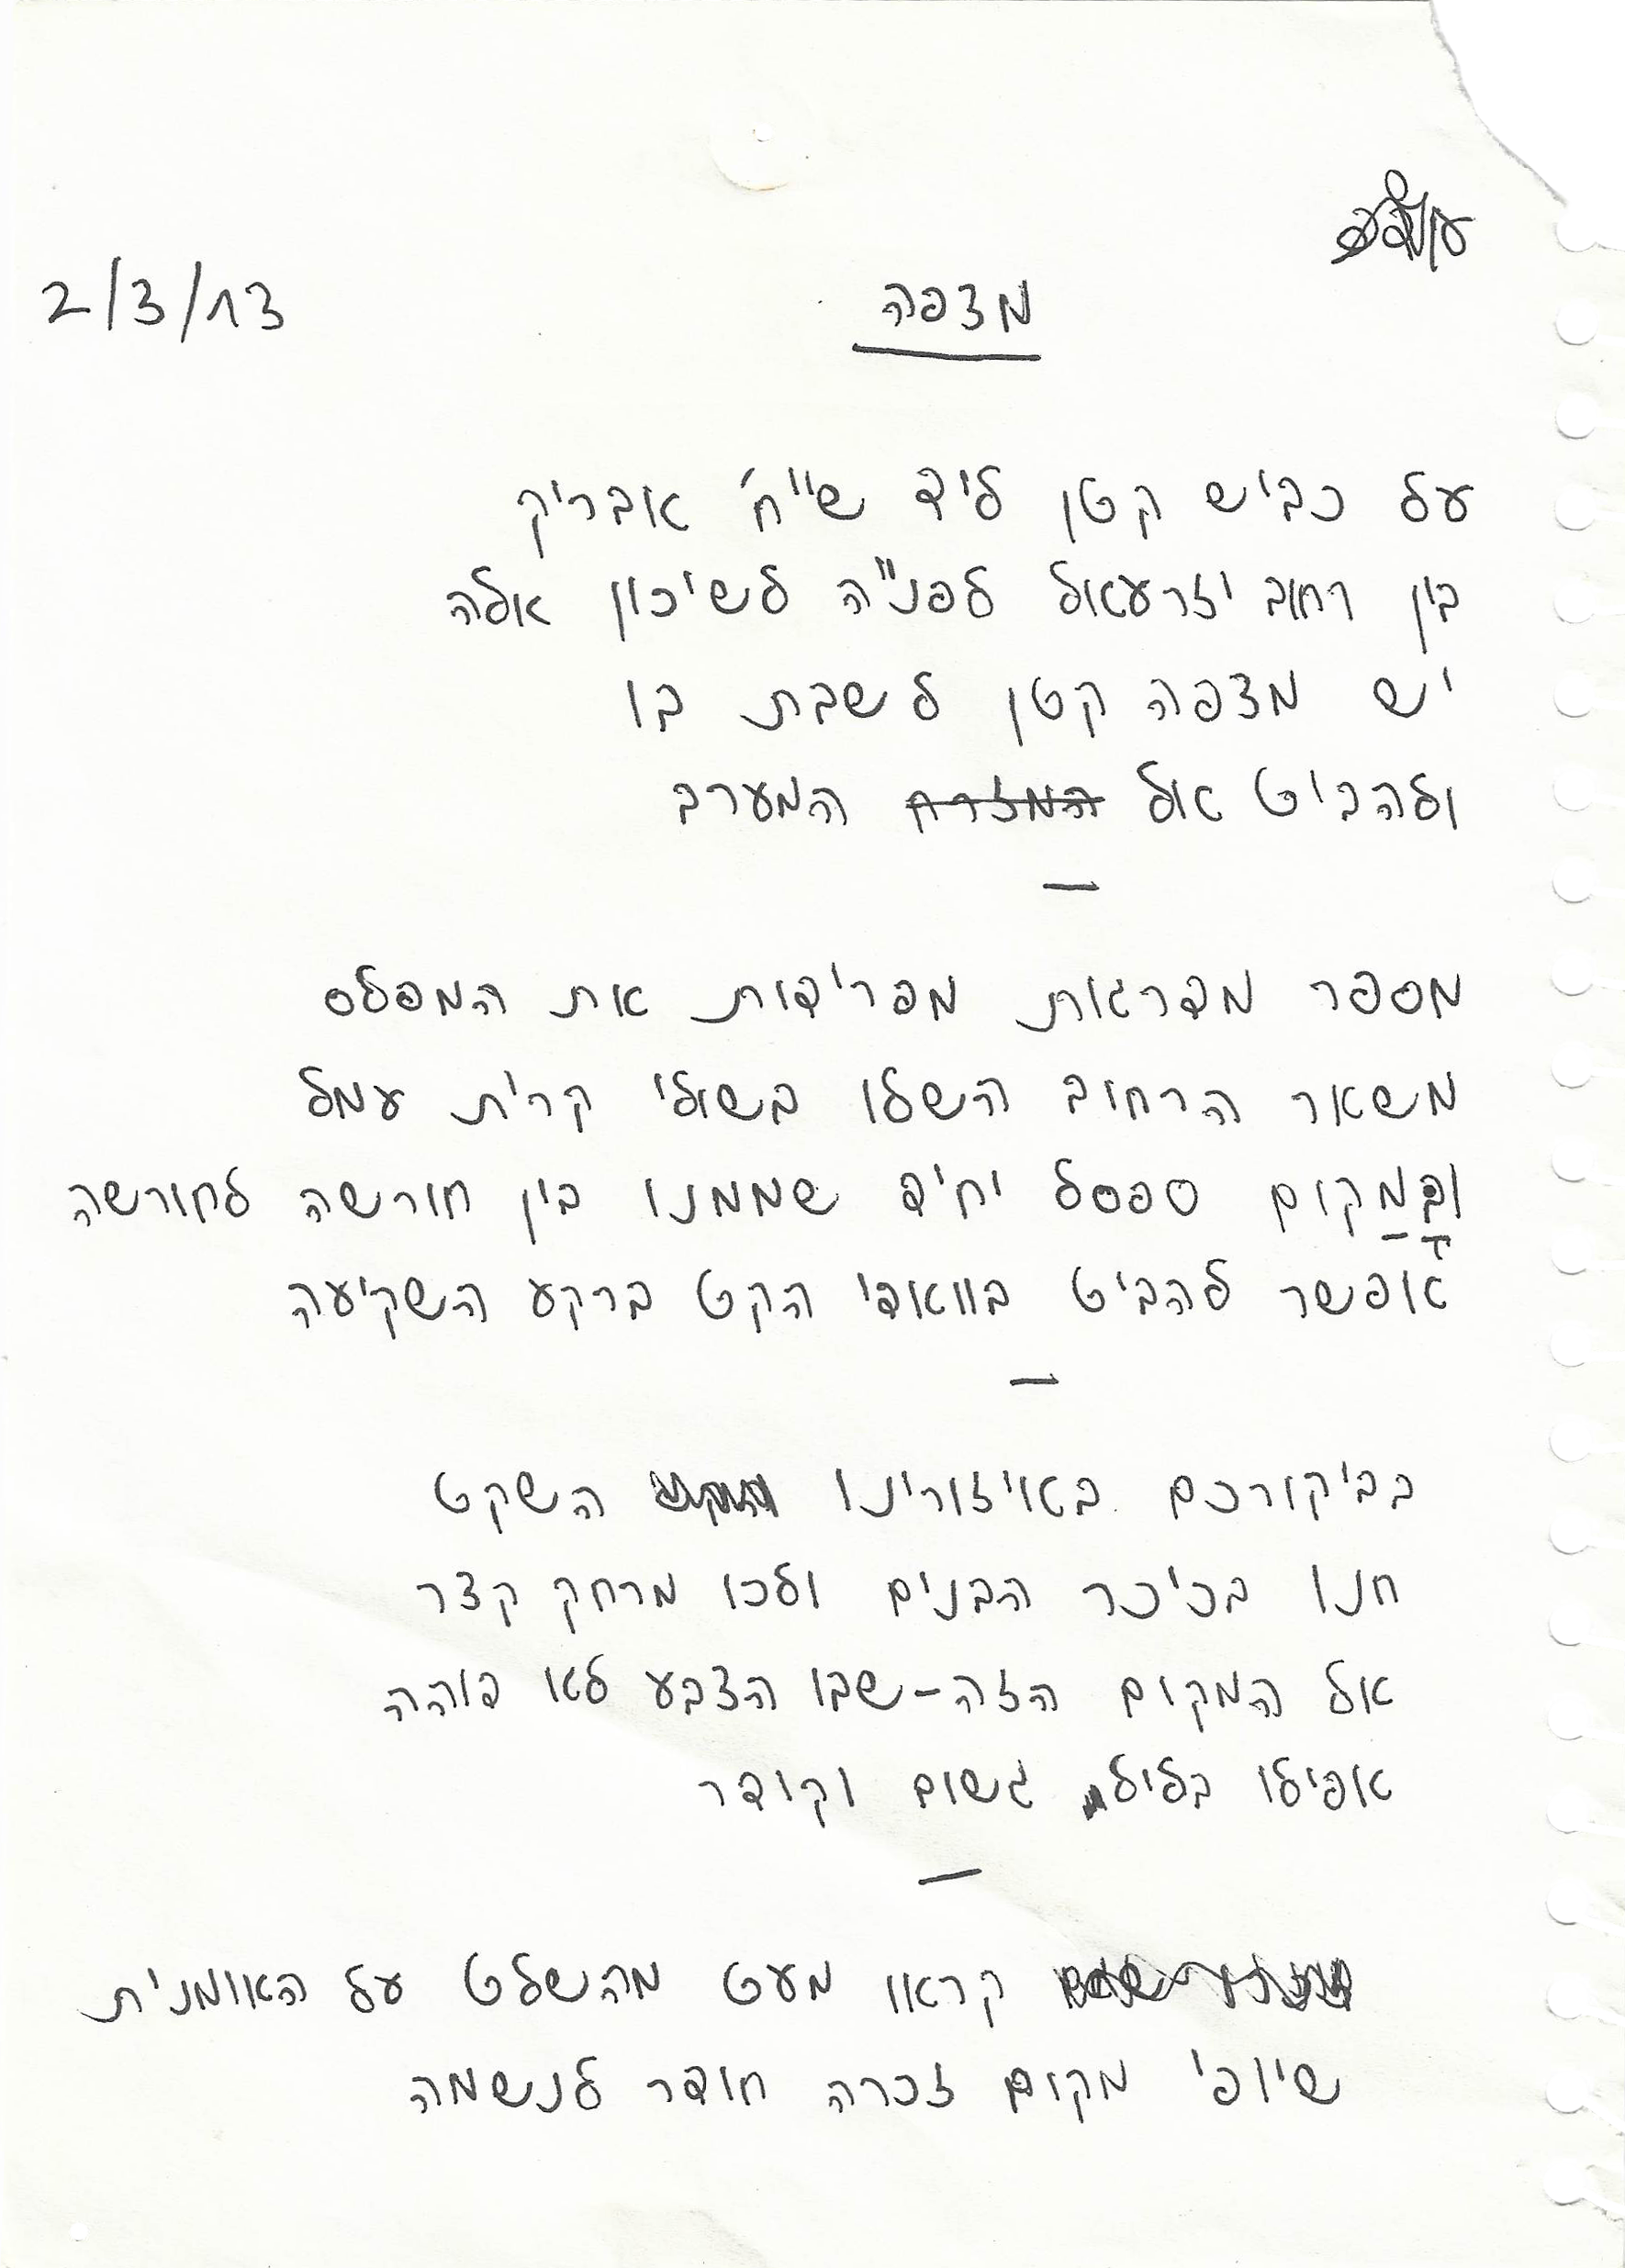 מצפה
2/3/13
על כביש קטן ליד שייח' אבריק
בין רחוב יזרעאל לפנ"ה לשיכון אלה
יש מצפה קטן לשבת בו
ולהביט אל המזרח המערב
—
מספר מדרגות מפרידות את המפלס
משאר הרחוב השלו בשולי קרית עמל
ובַמָקום ספסל יחיד שממנו בין חורשה לחורשה
אפשר להביט בוואדי הקט ברקע השקיעה
—
בביקורכם באיזורינו השקט
חנו בכיכר הבנים ולכו מרחק קצר
אל המקום הזה-שבו הצבע לא כוהה
אפילו בליל גשום וקודר
—
קראו מעט מהשלט על האומנית
שיופי מקום זכרה חודר לנשמה